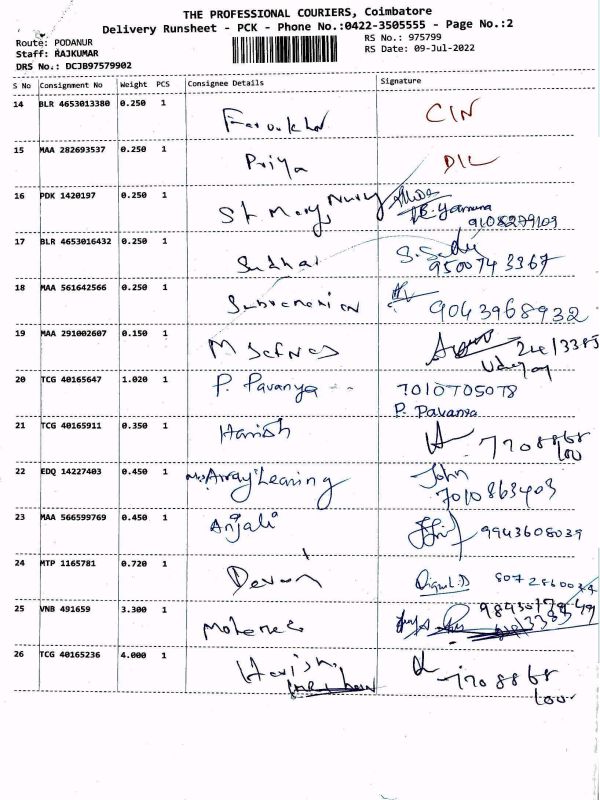 THE PROFESSIONAL COURIERS, Coimbatore
Delivery Runsheet - PCK - Phone No.:0422-3505555 - Page No.:2
Route: PODANUR
RS No.: 975799
Staff: RAJKUMAR
RS Date: 09-Jul-2022
DRS No.: DCJB97579902
S No Consignment No Weight PCS Consignee Details Signature
14 BLR 4653013380 0.250 1 CIN
15 MAA 282693537 0.250 1 Priya DIL
16 PDK 1420197 0.250 1 St Mary Nursy B. Yamuna
9108279109
17 BLR 4653016432 0.250 1 Sudhar
9500743367
18 MAA 561642566 0.250 1 9043968932
19 MAA 291002607 0.150 1
20 TCG 40165647 1.020 1 P. Pavanya 7010705078
P. Pavanya
21 TCG 40165911 0.350 1 Harish 7708868
100
22 EDQ 14227403 0.450 1 Array Learning John
7010863403
23 MAA 566599769 0.450 1 Anjali 9943608039
24 MTP 1165781 0.720 1
25 VNB 491659 3.300 1
26 TCG 40165236 4.000 1 Harish 7708868
100